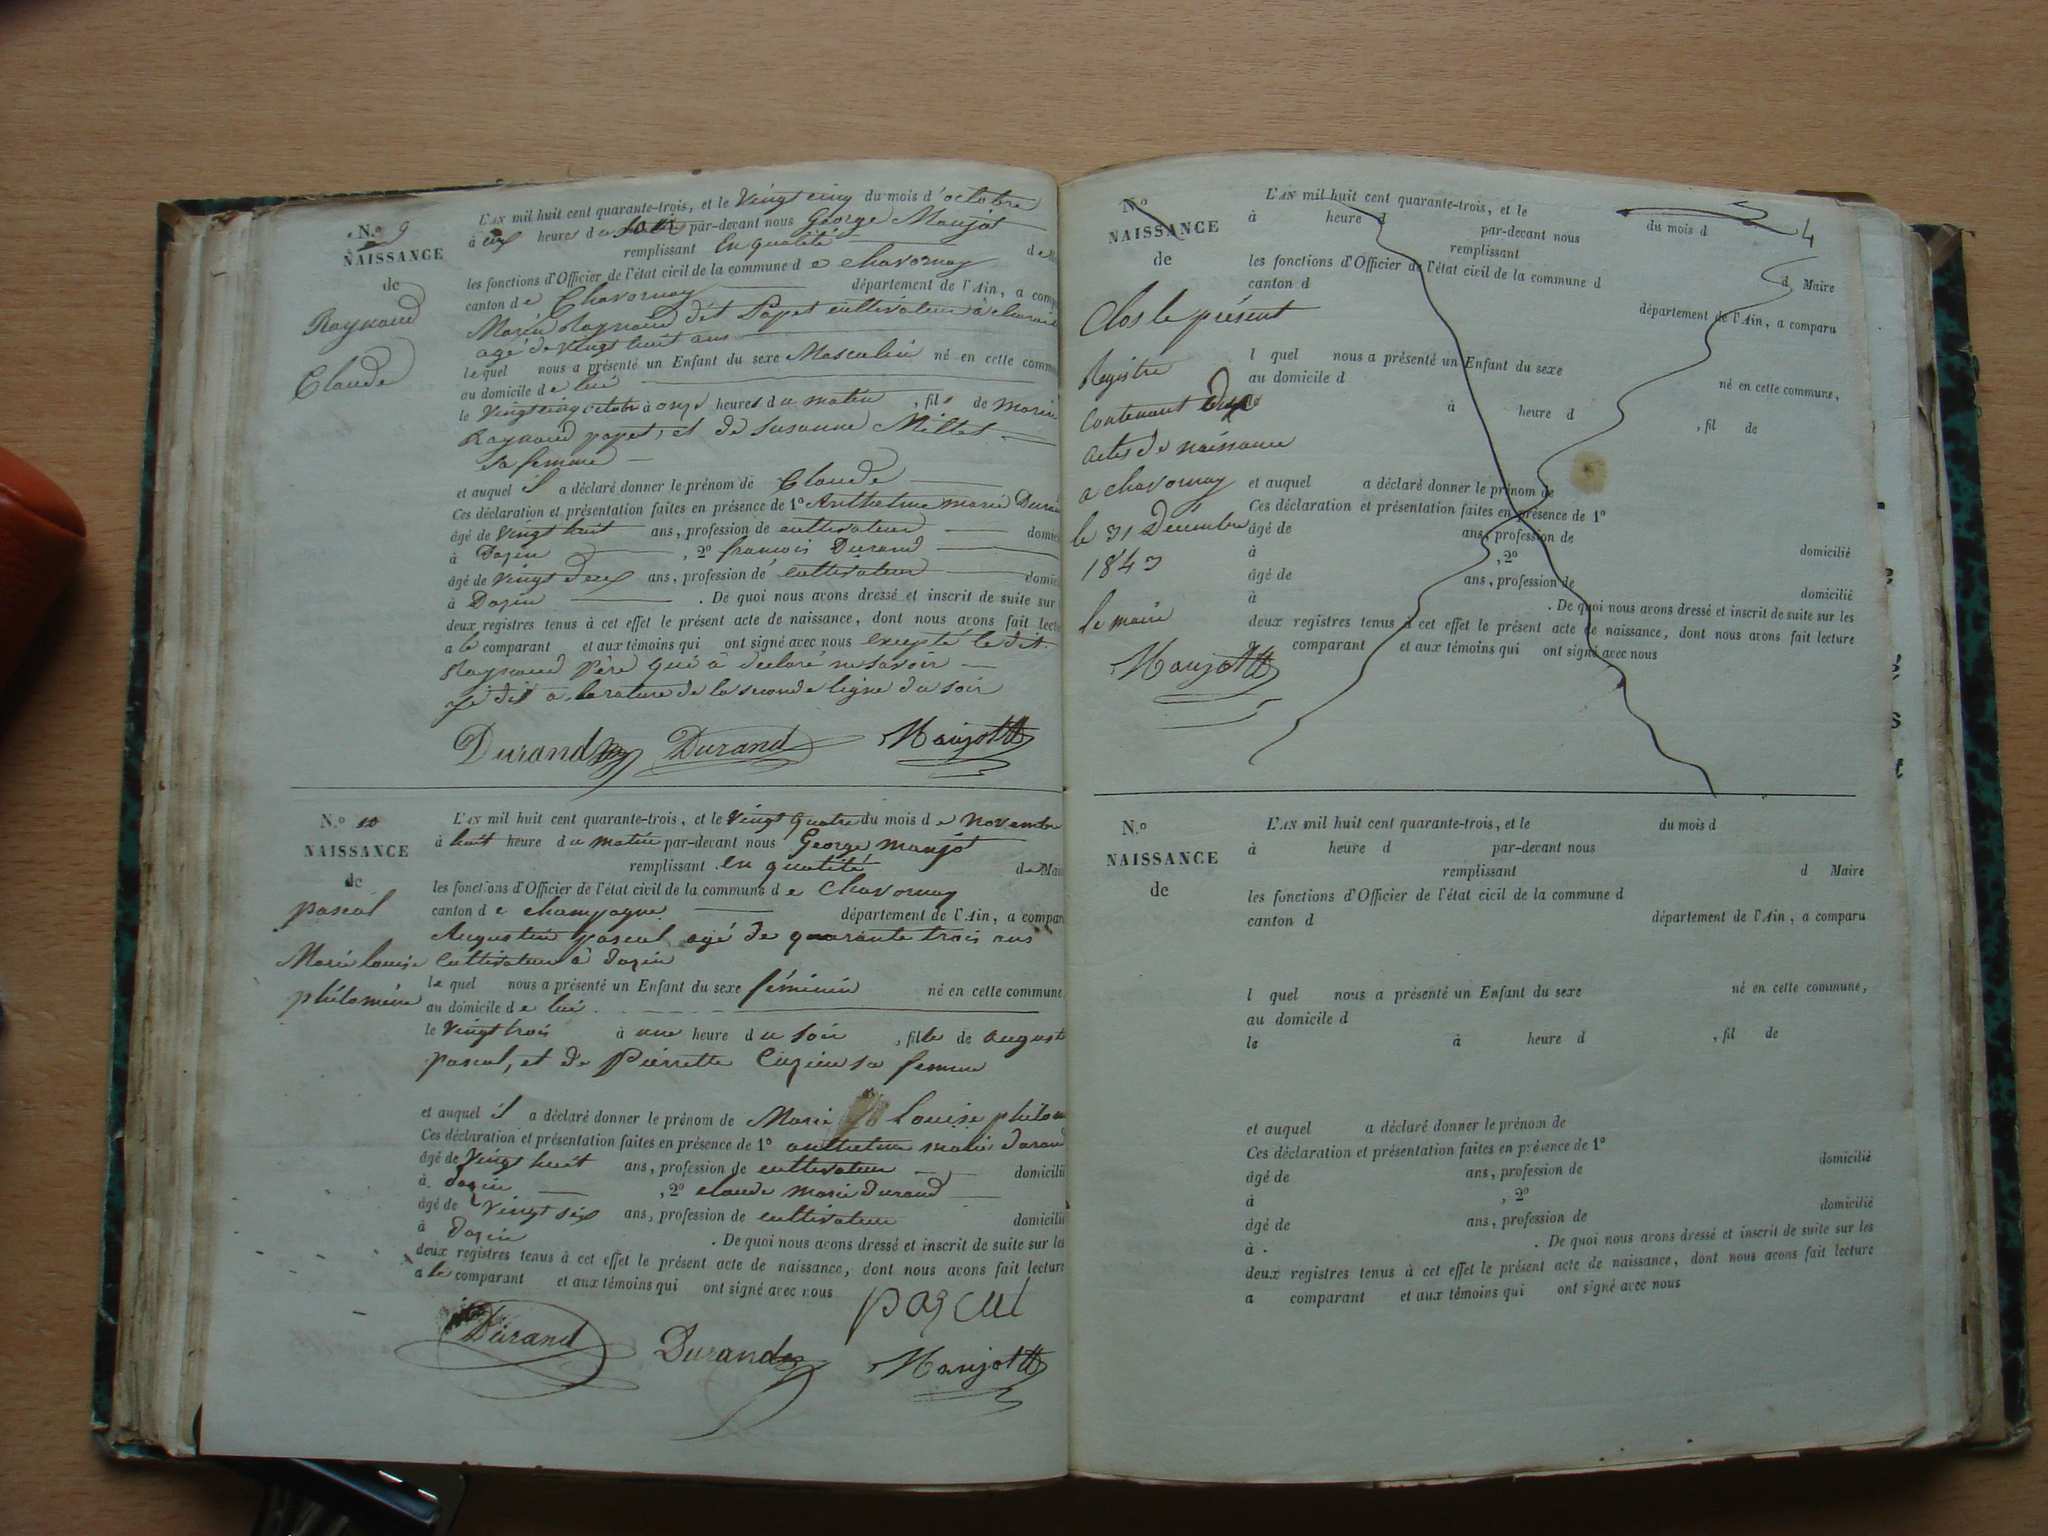 N.o 9
NAISSANCE
de
Raynaud
Claude
L'AN mil huit cent quarante-trois, et le Vingt cinq du mois d'octobre
à six heures du soir par-devant nous George Maujot
remplissant en qualité de M
les fonctions d'Officier de l'état civil de la commune de Chavornay
canton de Chavornay département de l'Ain, a compa
Marin Raynaud dit Papet cultivateur à
agé de vingt huit ans
lequel nous a présenté un Enfant du sexe Masculin né en cette commu
au domicile de lui
le Vingt cinq octobre à onze heures du matin, fils de Marin
Raynaud papet, et de Susanne Millet
sa femme
et auquel il a déclaré donner le prénom de Claude
Ces déclaration et présentation faites en présence de 1o Anthelme marie Durand
âgé de vingt huit ans, profession de cultivateur domici
à Dazin, 2o francois Durand
âgé de vingt deux ans, profession de cultivateur domici
à Dazin. De quoi nous avons dressé et inscrit de suite sur
deux registres tenus à cet effet le présent acte de naissance, dont nous avons fait lectu
a le comparant et aux témoins qui ont signé avec nous excepté le dit
Raynaud père qui à déclaré ne savoir
Je dis à la rature de la seconde ligne du soir
Durand Durand Maujot
N.o 10
NAISSANCE
de
pascal
Marie louise
philomène
L'AN mil huit cent quarante-trois, et le Vingt quatre du mois de novembre
à huit heure du matin par-devant nous George maujot
remplissant en qualité de Mai
les fonctions d'Officier de l'état civil de la commune de Chavornay
canton de champagne département de l'Ain, a compar
Augustin pascal agé de quarante trois ans
cultivateur à dazin
le quel nous a présenté un Enfant du sexe féminin né en cette commune
au domicile de lui
le Vingt trois à une heure du soir, fille de august
pascal, et de Pierrette Cuzin sa femme
et auquel il a déclaré donner le prénom de Marie Louise philom
Ces déclaration et présentation faites en présence de 1o anthelme marie durand
âgé de vingt huit ans, profession de cultivateur domicilié
à dazin, 2o claude marie durand
âgé de vingt six ans, profession de cultivateur domicilié
à dazin. De quoi nous avons dressé et inscrit de suite sur les
deux registres tenus à cet effet le présent acte de naissance, dont nous avons fait lecture
a le comparant et aux témoins qui ont signé avec nous pascal
Durand Durand Maujot
4
N.o
NAISSANCE
de
Clos le présent
Registre
Contenant
actes de naissance
a chavornay
le 31 Décembre
1843
le maire
Maujot
L'AN mil huit cent quarante-trois, et le du mois d
à heure d par-devant nous
remplissant d Maire
les fonctions d'Officier de l'état civil de la commune d
canton d département de l'Ain, a comparu
l quel nous a présenté un Enfant du sexe né en cette commune,
au domicile d
à heure d, fil de
et auquel a déclaré donner le prénom de
Ces déclaration et présentation faites en présence de 1o
âgé de ans, profession de domicilié
à, 2o
âgé de ans, profession de domicilié
à. De quoi nous avons dressé et inscrit de suite sur les
deux registres tenus à cet effet le présent acte de naissance, dont nous avons fait lecture
a comparant et aux témoins qui ont signé avec nous
N.o
NAISSANCE
de
L'AN mil huit cent quarante-trois, et le du mois d
à heure d par-devant nous
remplissant d Maire
les fonctions d'Officier de l'état civil de la commune d
canton d département de l'Ain, a comparu
l quel nous a présenté un Enfant du sexe né en cette commune,
au domicile d
le à heure d, fil de
et auquel a déclaré donner le prénom de
Ces déclaration et présentation faites en présence de 1o
âgé de ans, profession de domicilié
à, 2o
âgé de ans, profession de domicilié
à. De quoi nous avons dressé et inscrit de suite sur les
deux registres tenus à cet effet le présent acte de naissance, dont nous avons fait lecture
a comparant et aux témoins qui ont signé avec nous